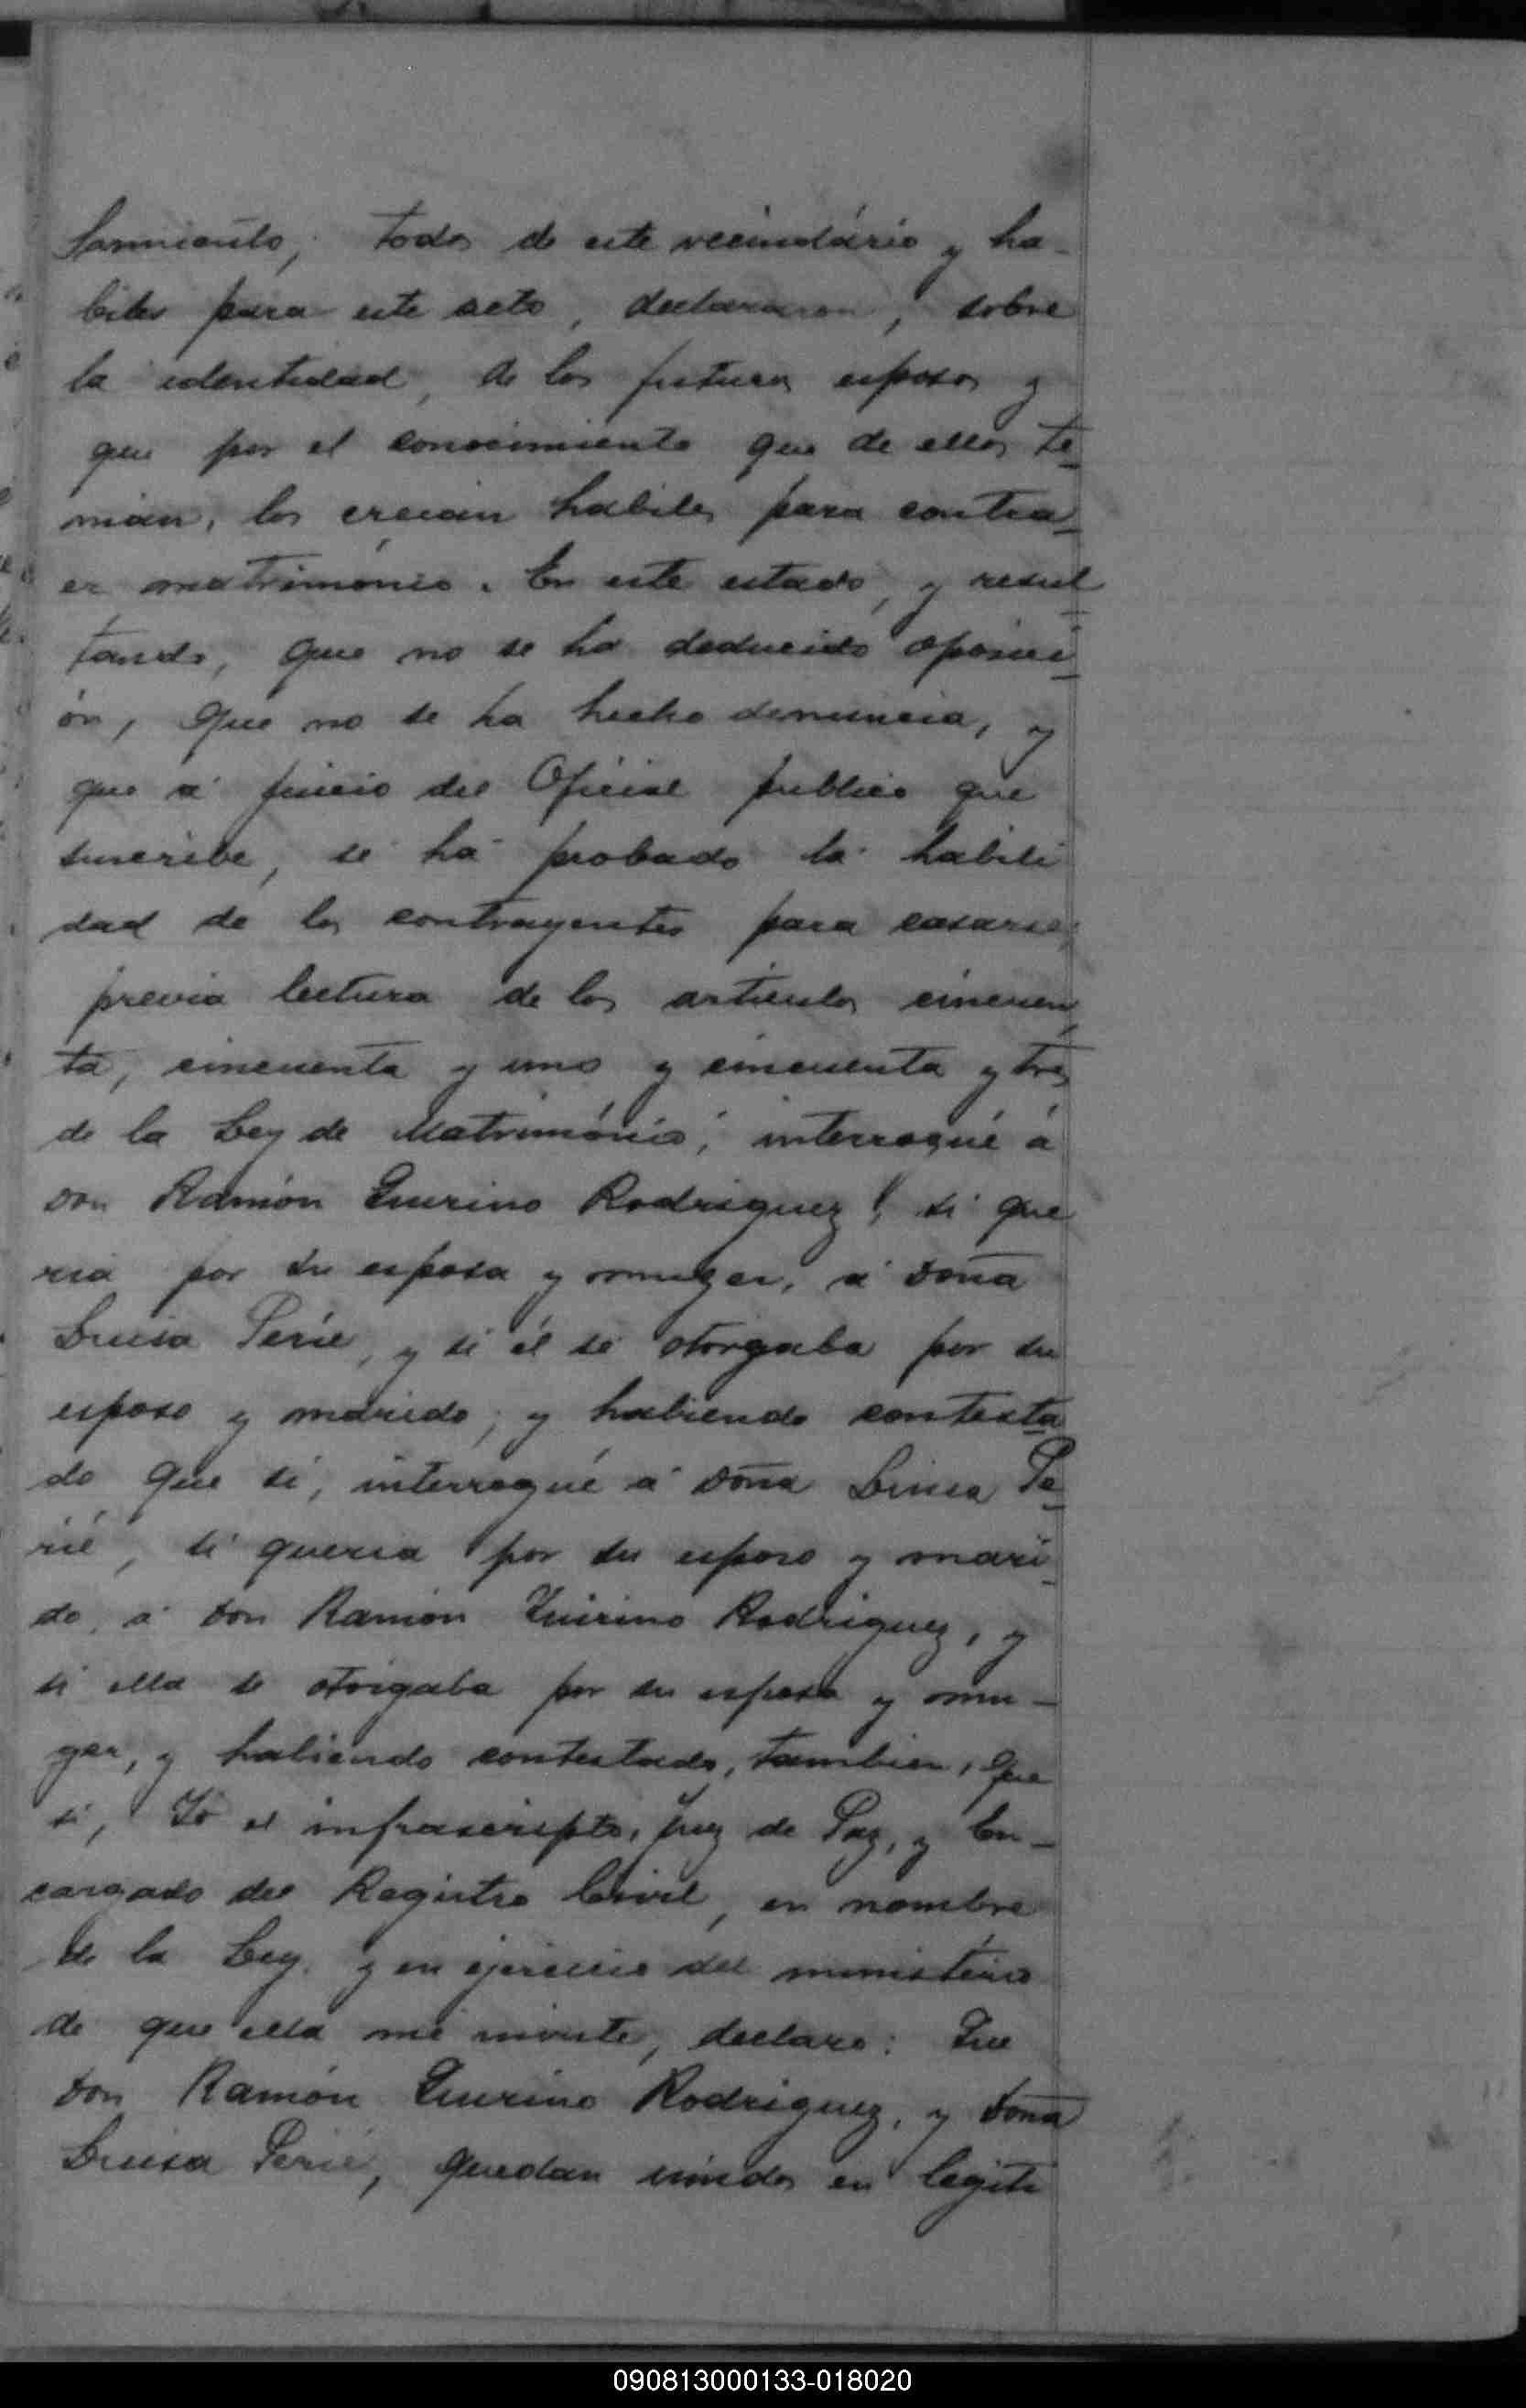 Sarmiento, todos de este vecindário y ha-
biles para este acto, declararon, sobre
la identidad, de los futuros esposos y
que por el conocimiento que de ellos te-
nian, los creian habiles para contra-
er matrimónio. En este estado, y resul-
tando, que no se ha deducido oposici-
ón, que no se ha hecho denuncia, y
que á juicio del Oficial publico que
suscribe, se ha probado la habili
dad de los contrayentes para casarse,
previa lectura de los articulos cincuen-
ta, cincuenta y uno y cincuenta y tres
de la Ley de Matrimónio, interrogué á
Don Ramón Quirino Rodriguez, si que
ria por su esposa y muger, á Doña
Luisa Perié, y si él se otorgaba por su
esposo y marido, y habiendo contesta-
do que si, interrogué á Doña Luisa Pe-
rié, si queria por su esposo y mari-
do, á Don Ramón Quirino Rodriguez, y
si ella se otorgaba por su esposa y mu-
ger, y habiendo contestado, tambien, que
si, Yo el infrascripto, Juez de Paz, y En-
cargado del Registro Civil, en nombre
de la Ley y en ejercicio del ministério
de que ella me inviste, declaro: Que
Don Ramón Quirino Rodriguez, y Doña
Luisa Perié, quedan unidos en legiti
090813000133-018020